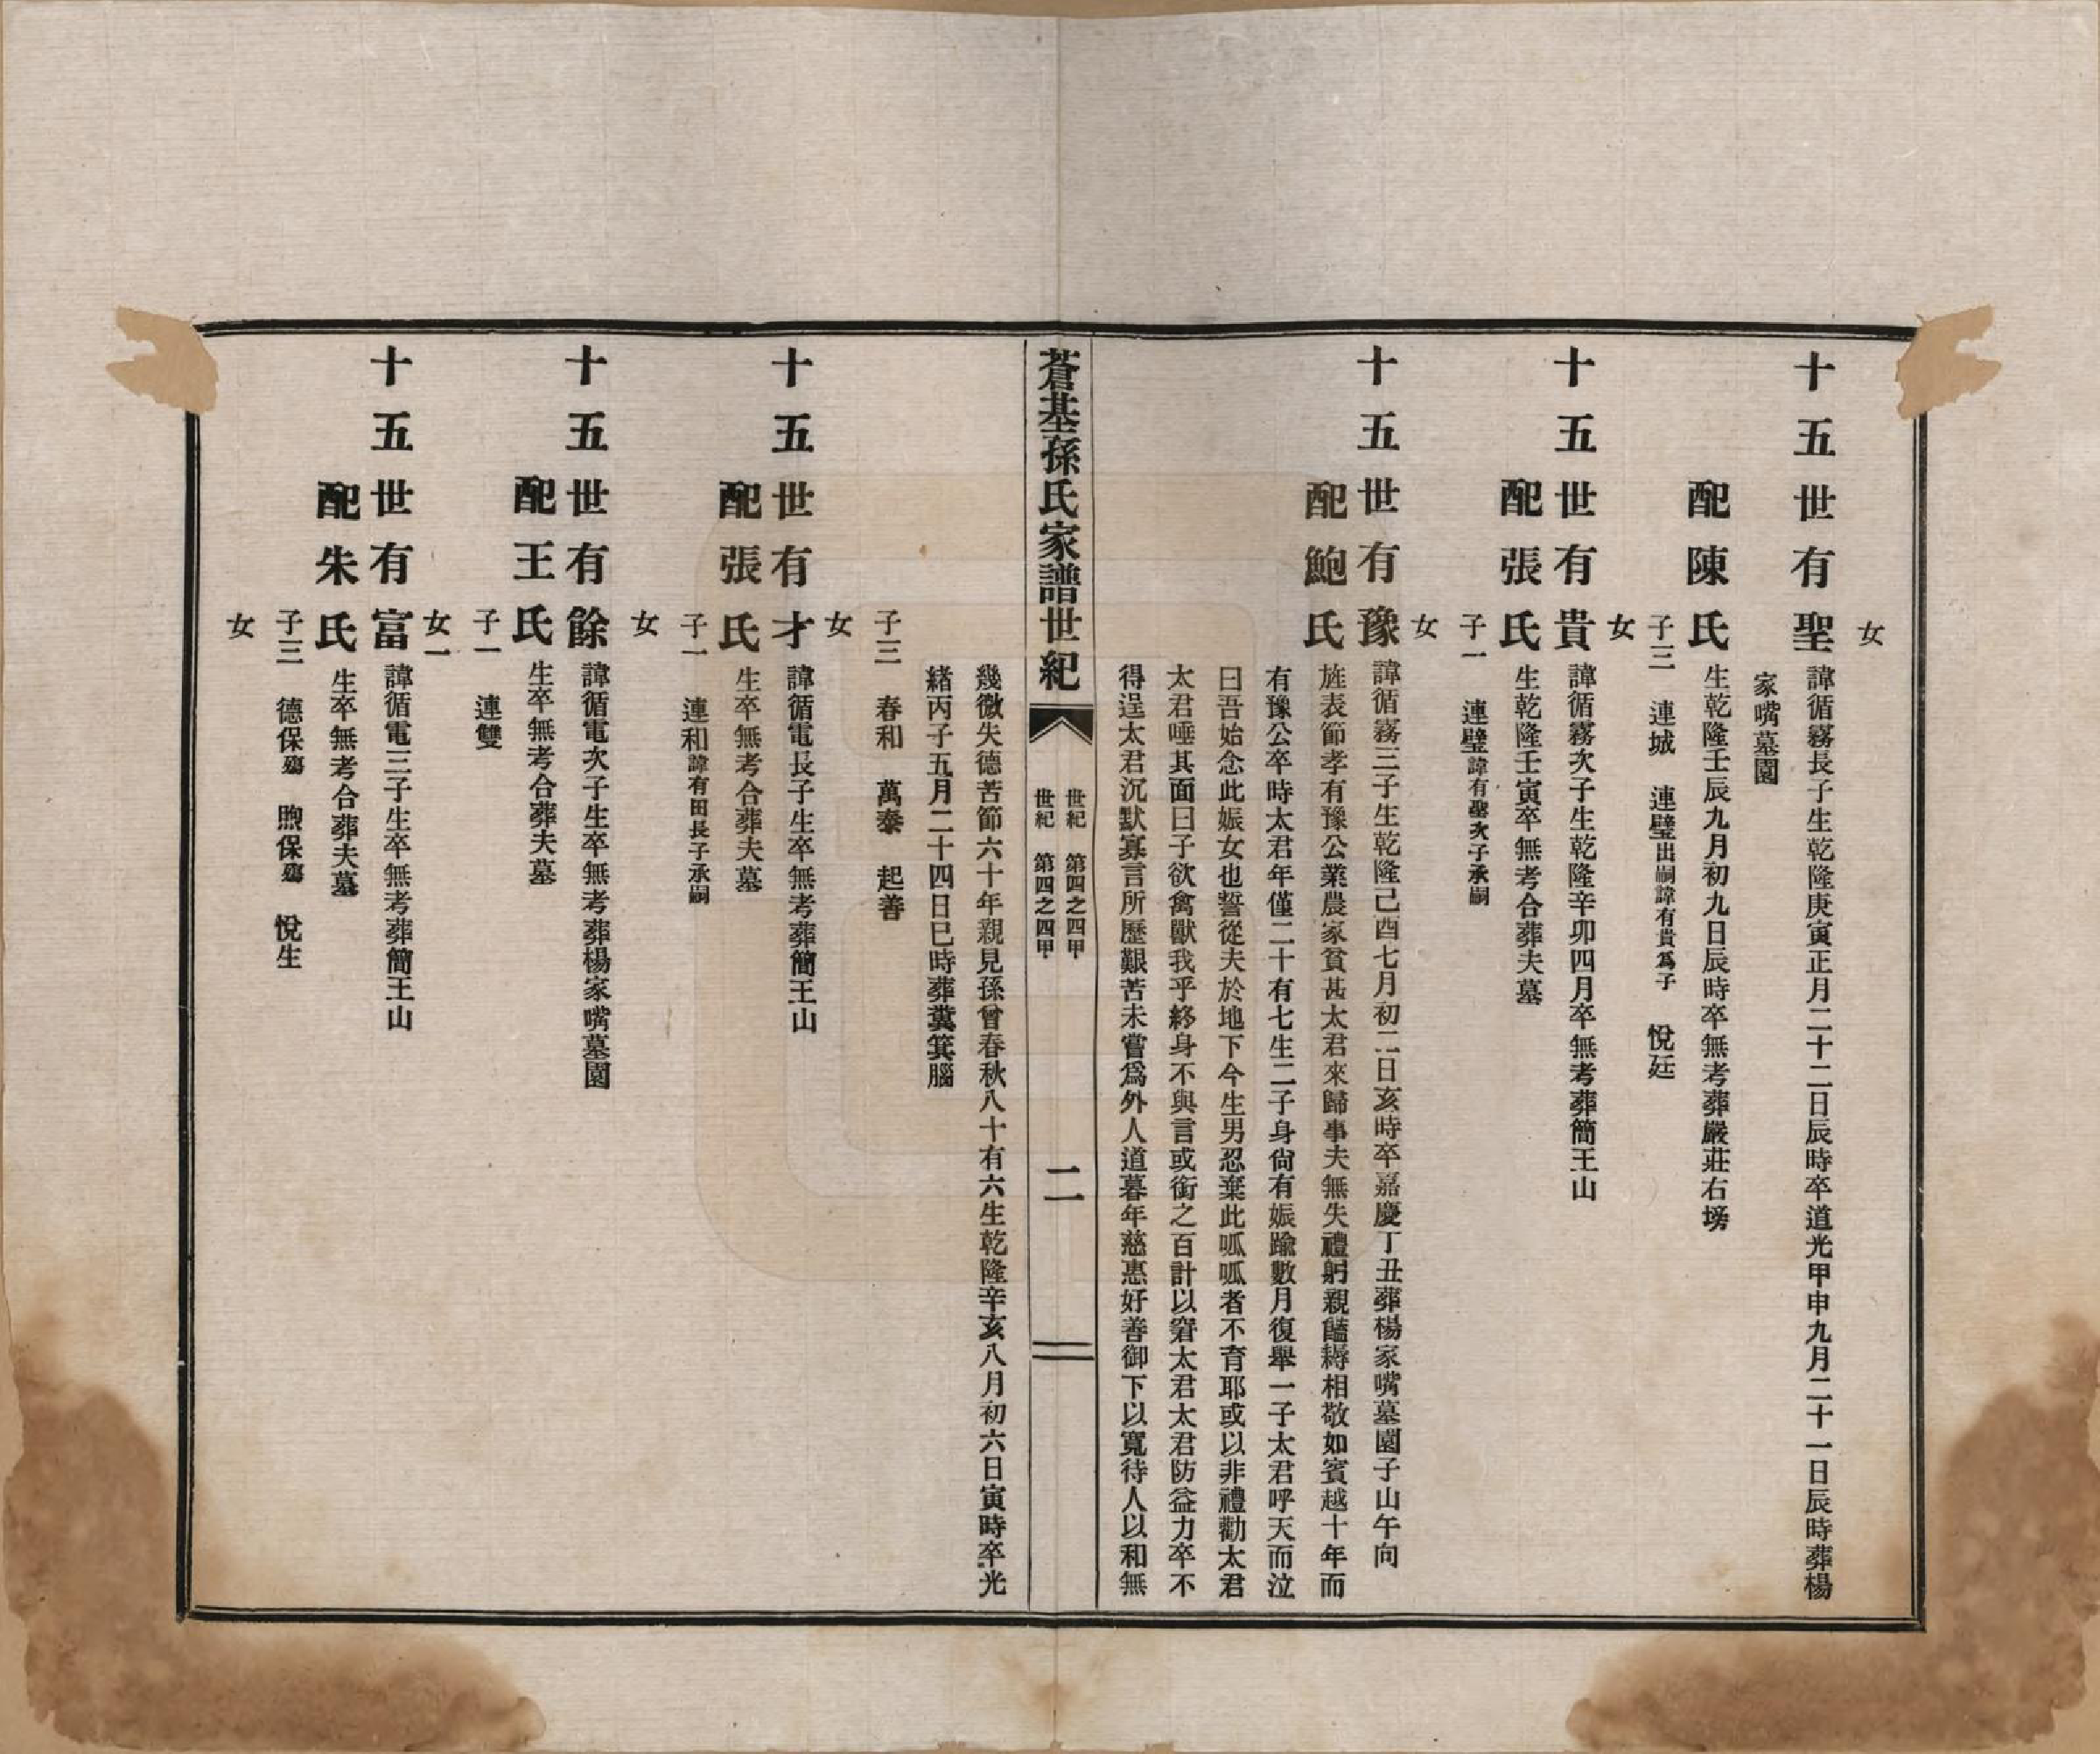 女
十五世有聖諱循霧長子生乾隆庚寅正月二十二日辰時卒道光甲申九月二十一日辰時葬楊
家嘴墓園
配陳氏生乾隆壬辰九月初九日辰時卒無考葬嚴莊右塝
子三 連城 連璧出嗣諱有貴爲子 悅廷
女
十五世有貴諱循霧次子生乾隆辛卯四月卒無考葬簡王山
配張氏生乾隆壬寅卒無考合葬夫墓
子一 連璧諱有聖次子承嗣
女
十五世有豫諱循霧三子生乾隆己酉七月初二日亥時卒嘉慶丁丑葬楊家嘴墓園子山午向
配鮑氏旌表節孝有豫公業農家貧甚太君來歸事夫無失禮躬親饁耨相敬如賓越十年而
有豫公卒時太君年僅二十有七生二子身尙有娠踰數月復舉一子太君呼天而泣
曰吾始念此娠女也誓從夫於地下今生男忍棄此呱呱者不育耶或以非禮勸太君
太君唾其面曰子欲禽獸我乎終身不與言或銜之百計以窘太君太君防益力卒不
得逞太君沉默寡言所歷艱苦未嘗爲外人道暮年慈惠好善御下以寬待人以和無
蒼基孫氏家譜世紀 世紀 第四之四甲 世紀 第四之四甲 二
幾微失德苦節六十年親見孫曾春秋八十有六生乾隆辛亥八月初六日寅時卒光
緖丙子五月二十四日巳時葬糞箕腦
子三 春和 萬泰 起善
女
十五世有才諱循電長子生卒無考葬簡王山
配張氏生卒無考合葬夫墓
子一 連和諱有田長子承嗣
女
十五世有餘諱循電次子生卒無考葬楊家嘴墓園
配王氏生卒無考合葬夫墓
子一 連雙
女一
十五世有富諱循電三子生卒無考葬簡王山
配朱氏生卒無考合葬夫墓
子三 德保殤 煦保殤 悅生
女